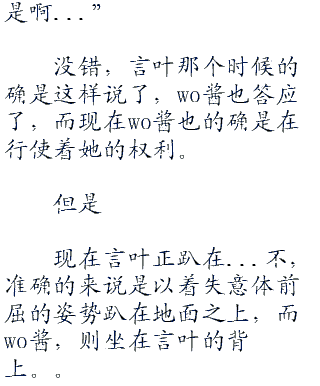 是啊...”
没错，言叶那个时候的
确是这样说了，wo酱也答应
了，而现在wo酱也的确是在
行使着她的权利。
但是
现在言叶正趴在...不，
准确的来说是以着失意体前
屈的姿势趴在地面之上，而
wo酱，则坐在言叶的背
上。。